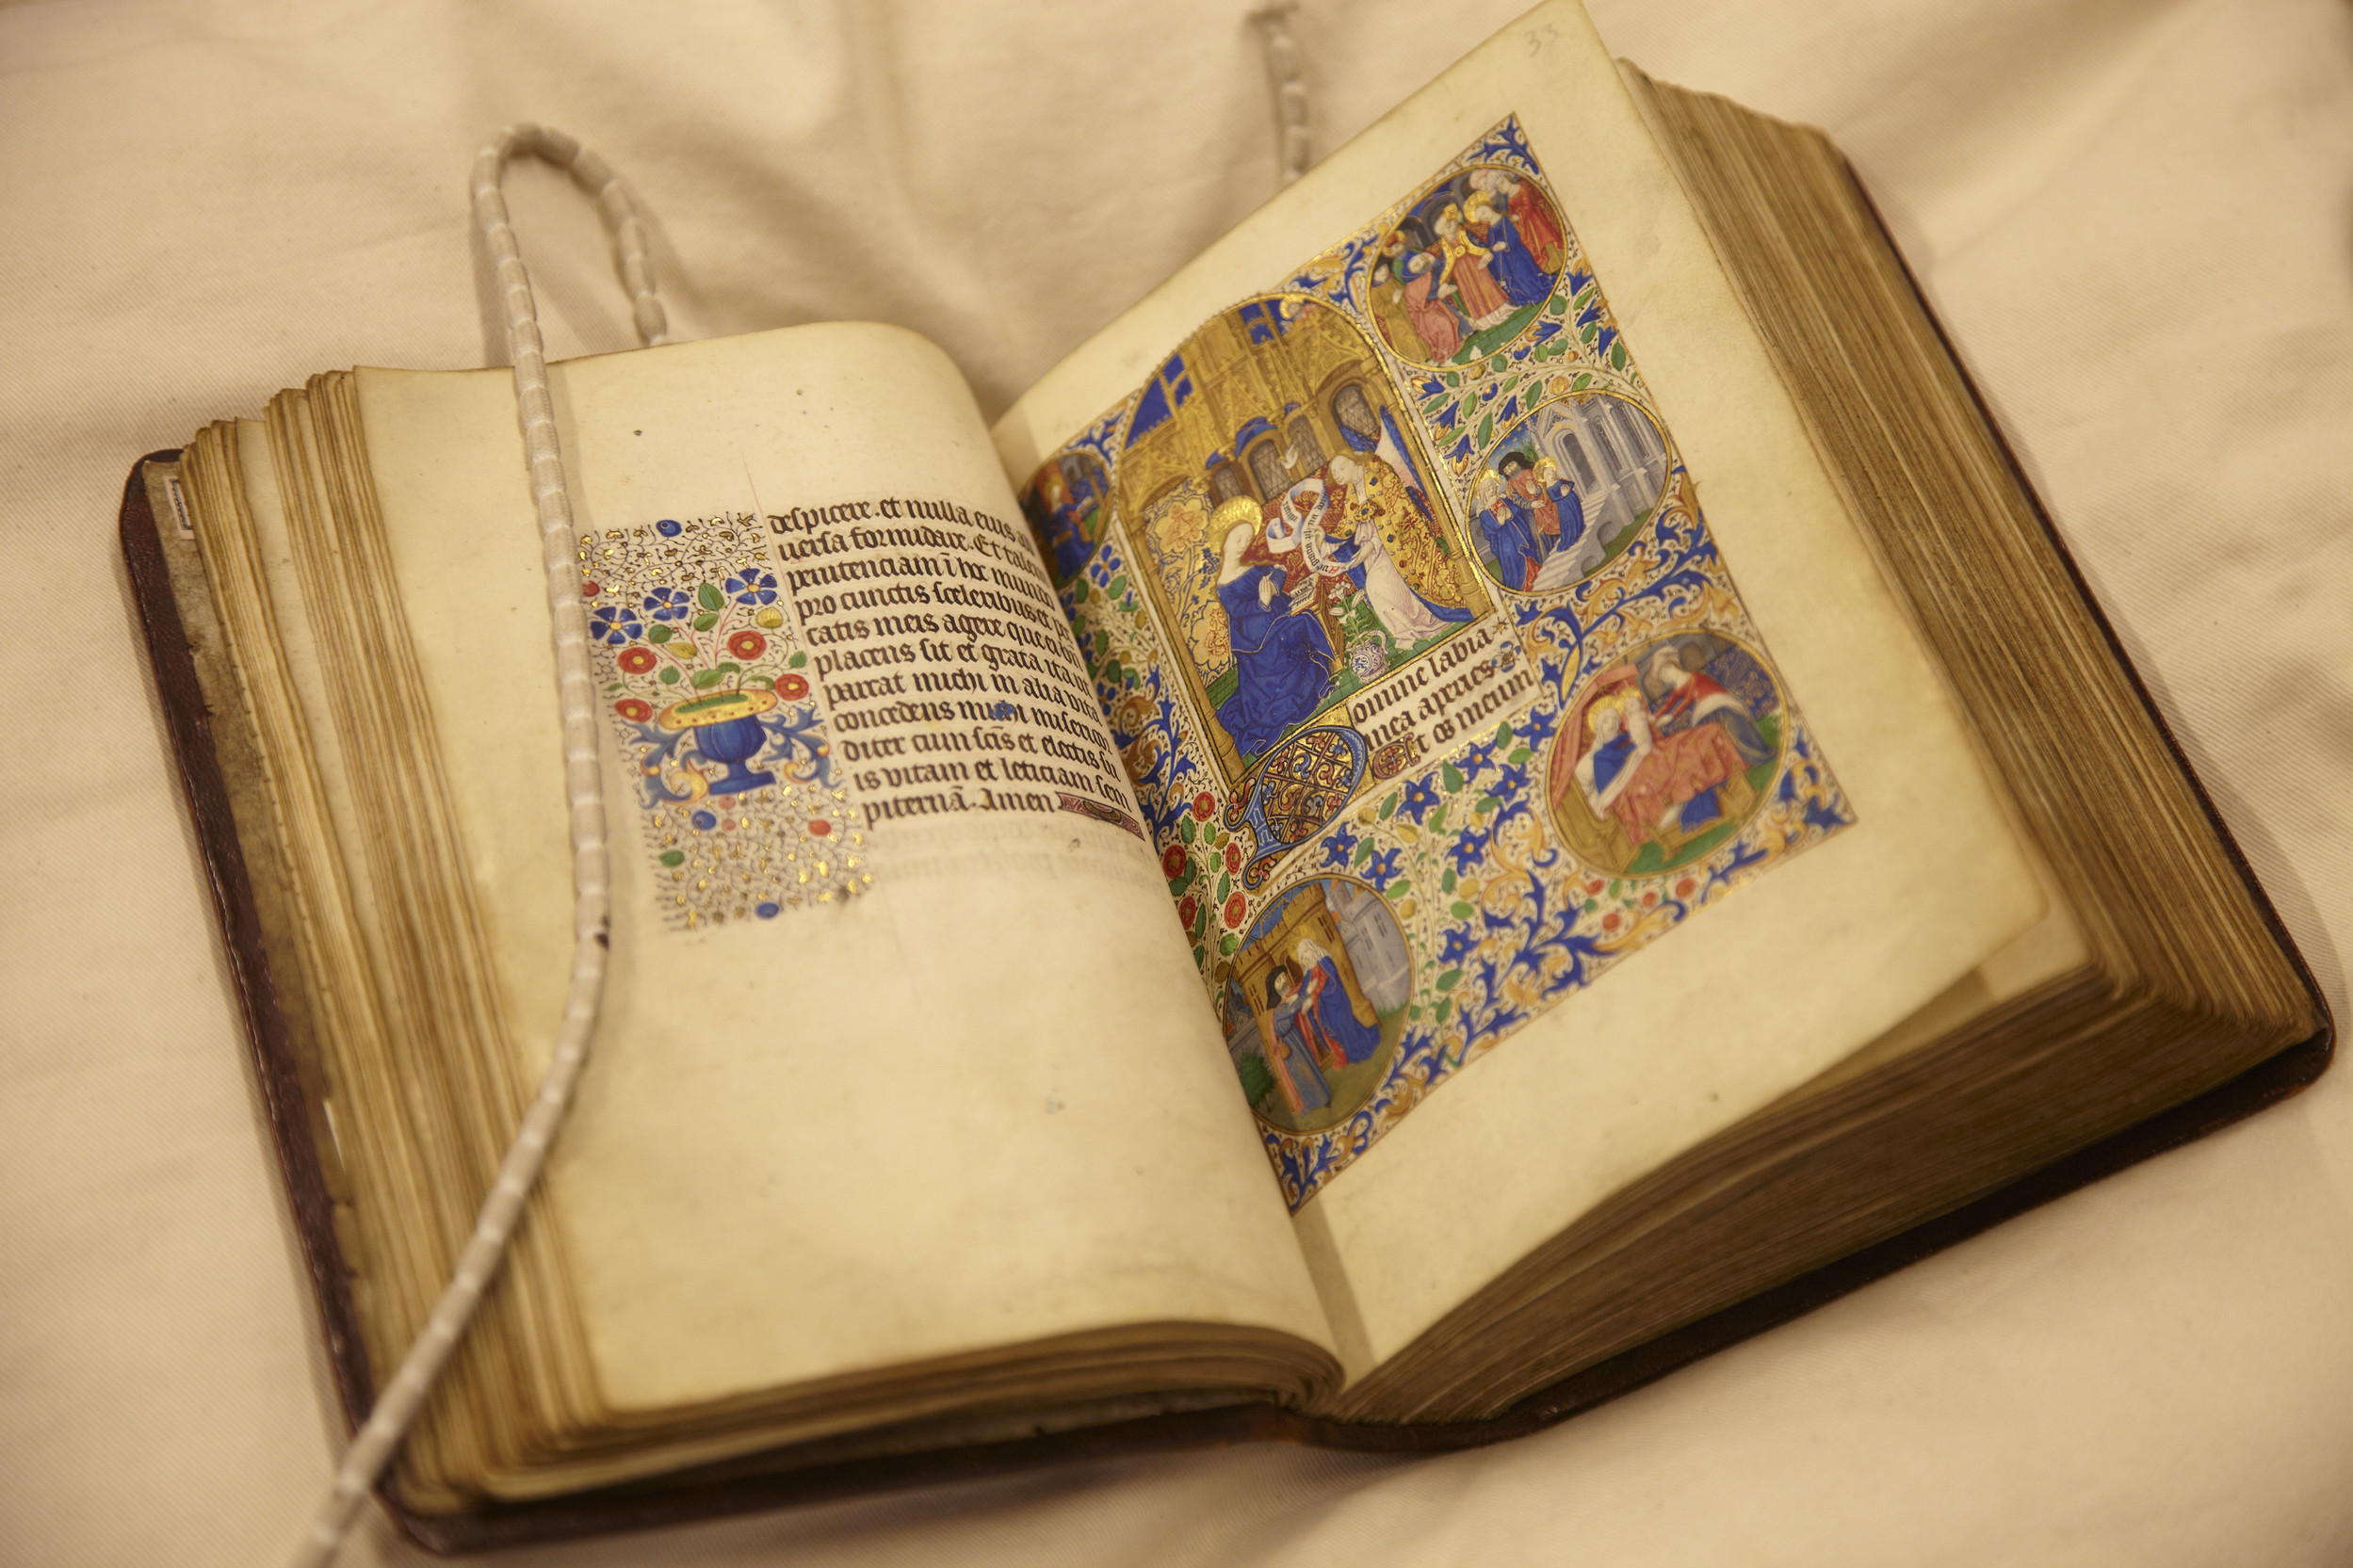 despicere. et nulla eius ad
uersa formidare. Et talem
penitenciam ī hoc mundo
pro cunctis sceleribus et pec
catis meis agere que tibi
placens sit et grata ita ut
parcat michi in alia vita
concedens michi misericor
diter cum scīs et electis su
is vitam et leticiam sem
piternā. Amen
33
omine labia
mea aperies
Et os meum